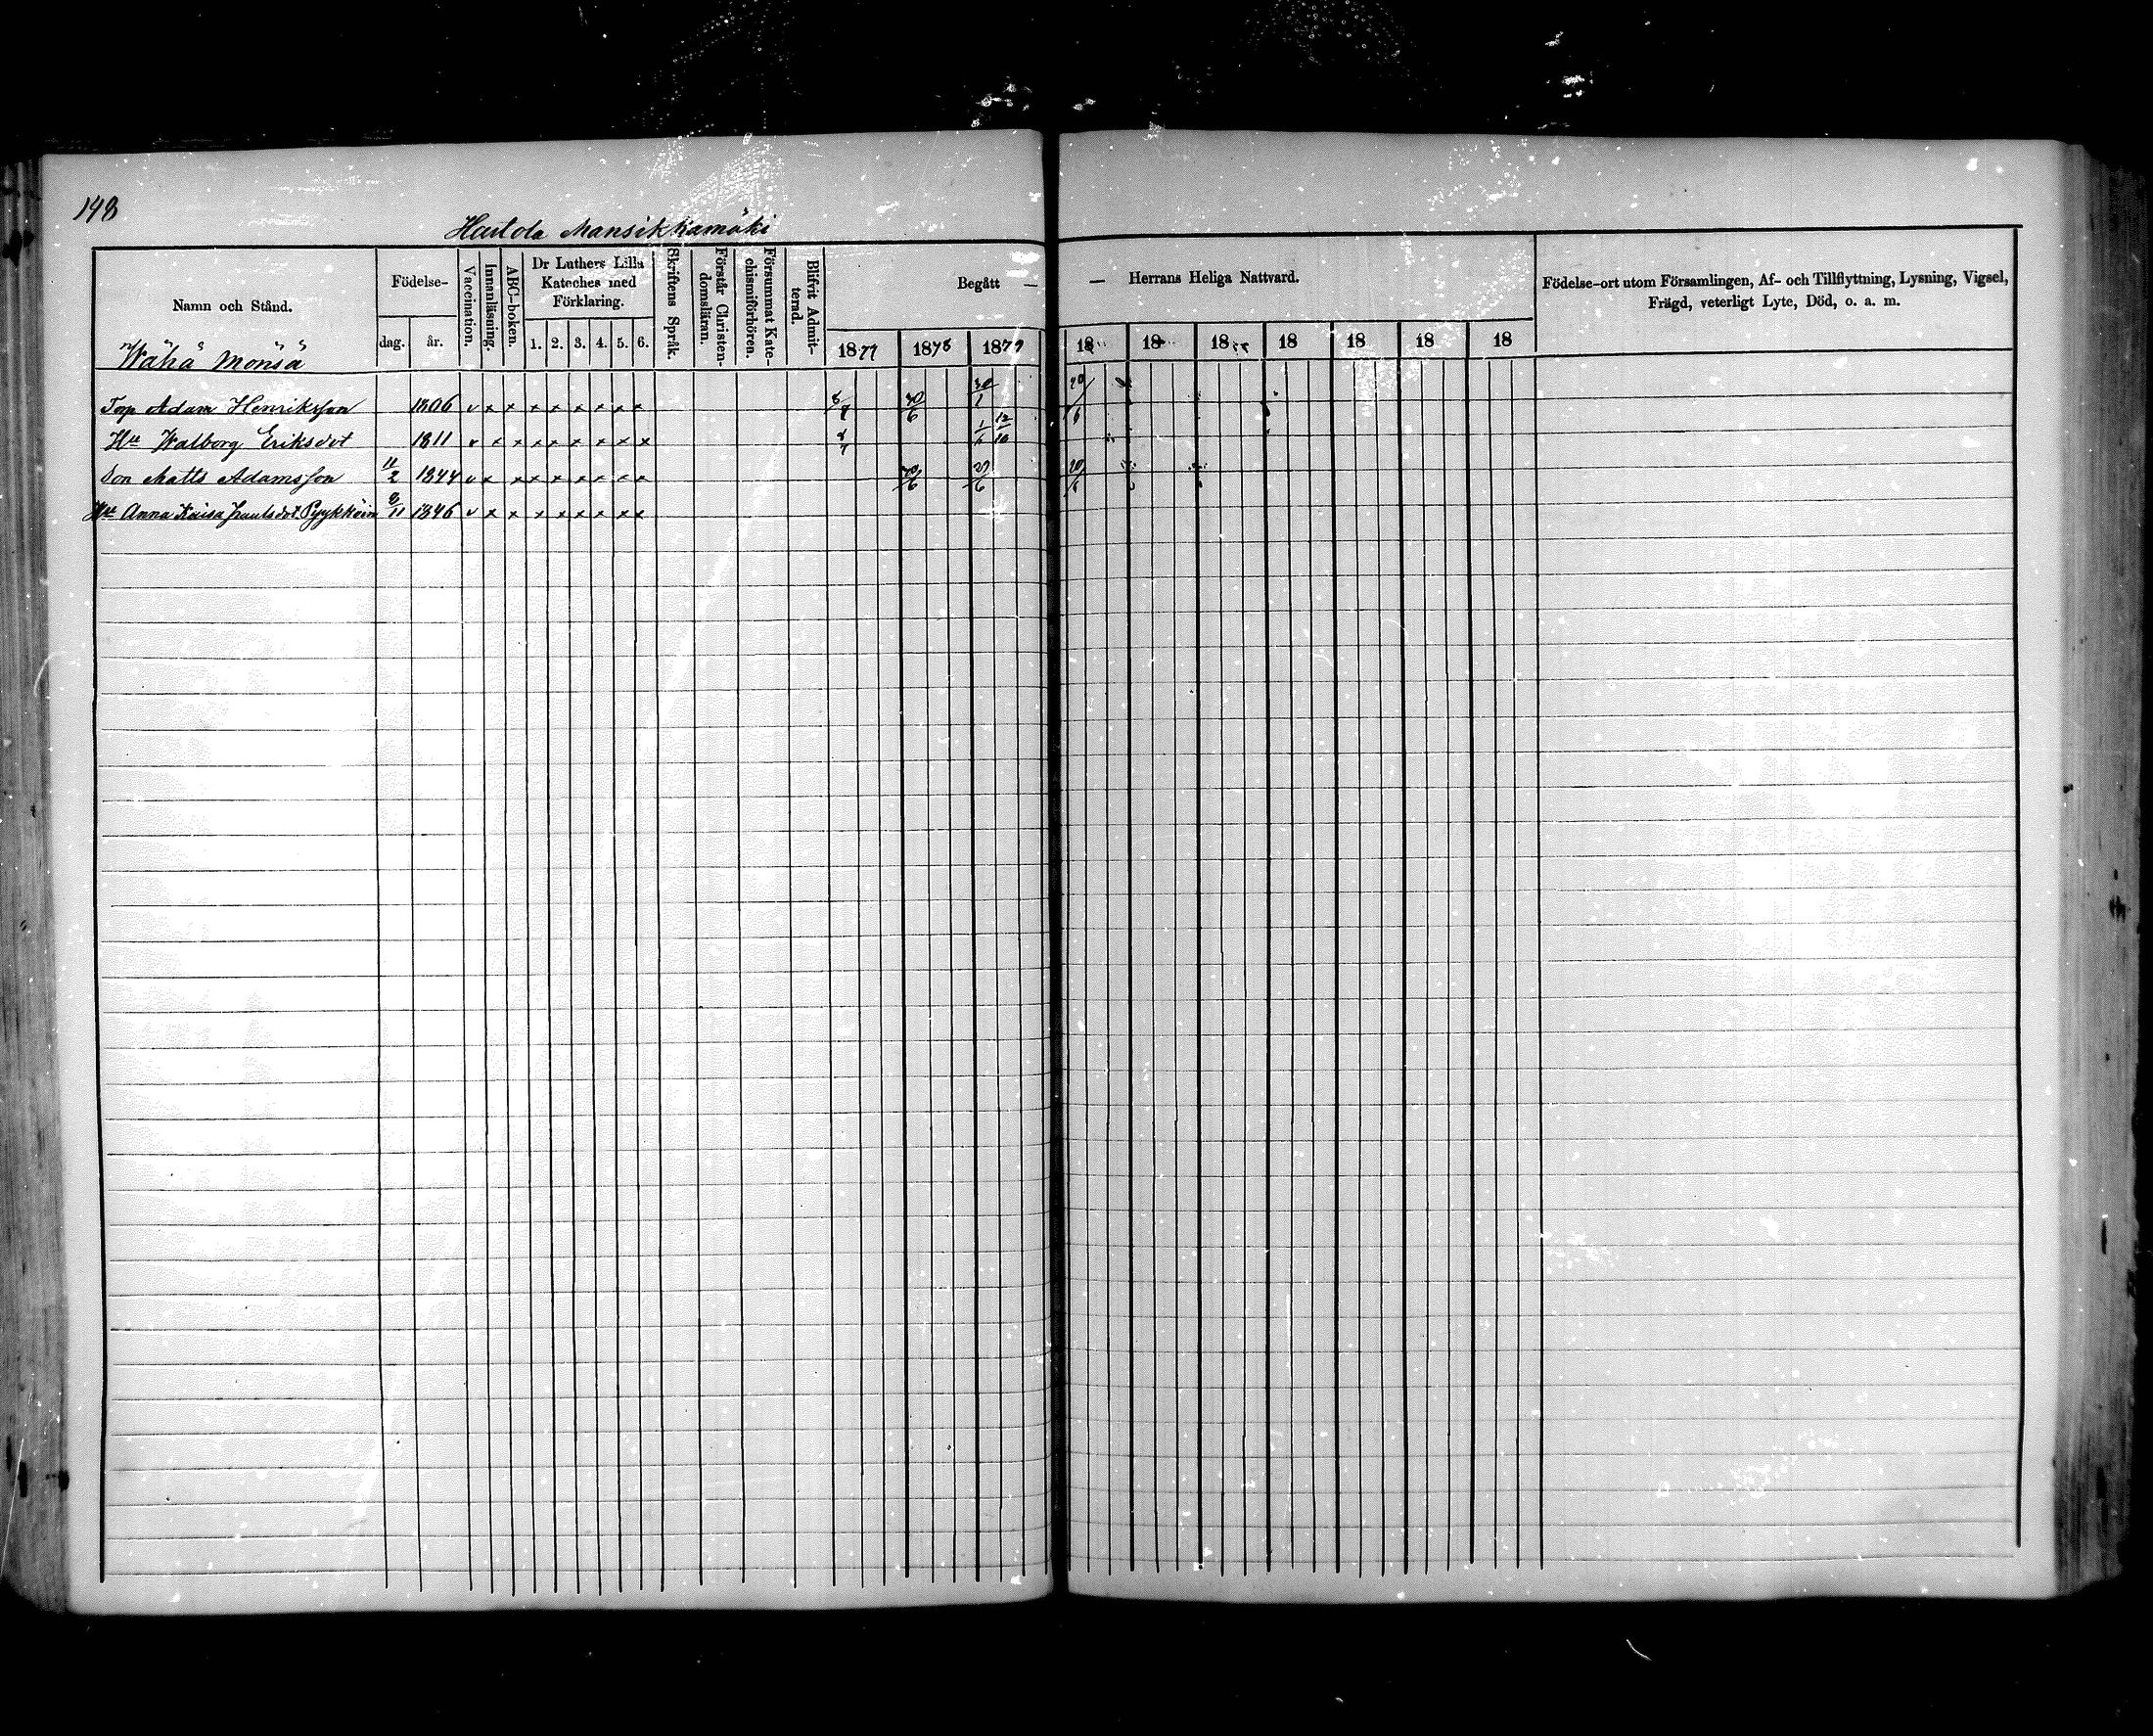 148
Hartola Mansikkamäki
Namn och Stånd.
Födelse-
dag.
år.
Vaccination.
Innanläsning.
ABC-boken.
Dr Luthers Lilla
Kateches med
Förklaring.
1. 2. 3. 4. 5. 6.
Skriftens Språk.
Förstår Christen-
domsläran.
Försummat Kate-
chismiförhören.
Blifvit Admit-
terad.
Begått — — Herrans Heliga Nattvard.
1877 1878 1879 18 18 18 18 18 18 18
Födelse-ort utom Församlingen, Af- och Tillflyttning, Lysning, Vigsel,
Frägd, veterligt Lyte, Död, o. a. m.
Wähä Mönsä
Torp Adam Henriksson 1806 v x x x x x x x x 8/7 30/6 30/1 20/6
Hu Walborg Eriksdot 1811 v x x x x x x x x 8/7 1/6 12/10
Son Matts Adamsson 11/2 1844 v x x x x x x x x 30/6 29/6 20/6
Hu Anna Kaisa 8/11 1846 v x x x x x x x x